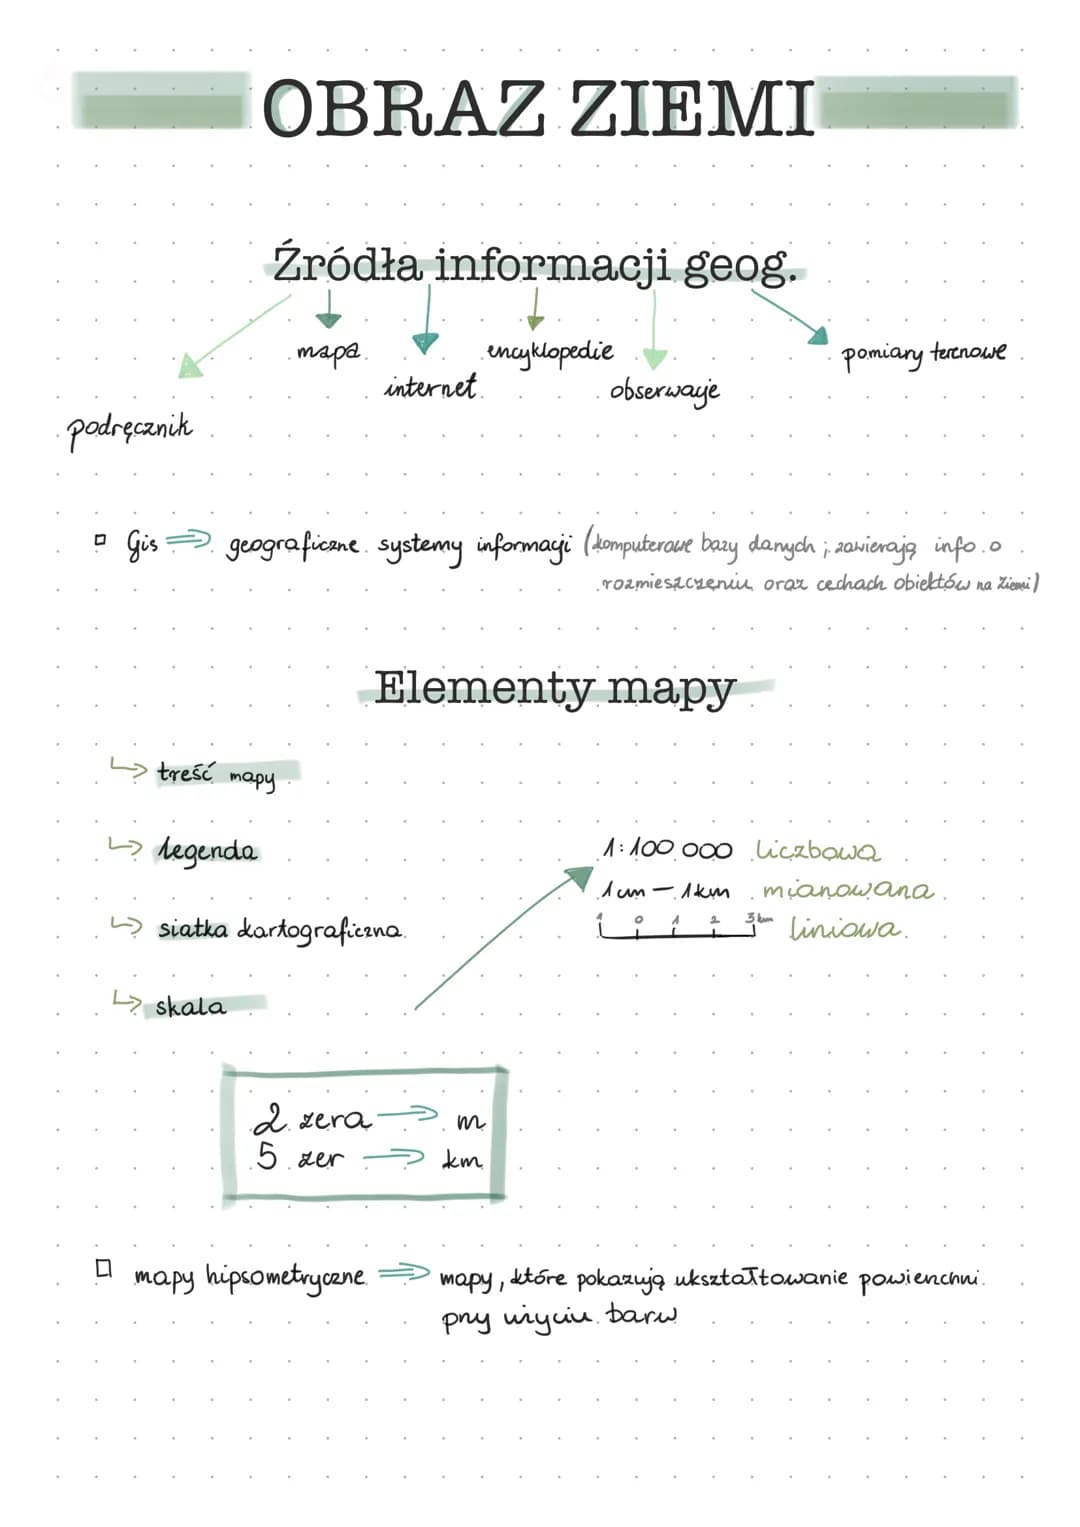 OBRAZ ZIEMI
Źródła informacji geog.
mapa
encyklopedie
pomiary terenowe
internet
obserwacje
podręcznik
Gis ⇒ geograficzne systemy informacji (komputerowe bazy danych; zawierają info o
rozmieszczeniu oraz cechach obiektów na Ziemi)
Elementy mapy
↳ treść mapy
↳ legenda
1:100 000 liczbowa
1cm – 1km mianowana
↳ siatka kartograficzna
1 0 1 2 3km liniowa
↳ skala
2 zera → m
5 zer → km
mapy hipsometryczne ⇒ mapy, które pokazują ukształtowanie powierzchni
przy użyciu barw